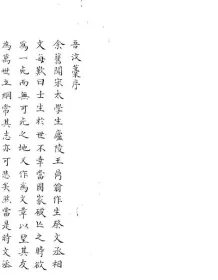 吾汶藁序
余舊聞宋太學生廬陵王鼎翁作生祭文丞相
文每歎曰士生於世不幸當國家破亡之時欲
為一死而無可死之地又作為文章以望其友
為萬世立綱常其志亦可悲矣然當是時文丞